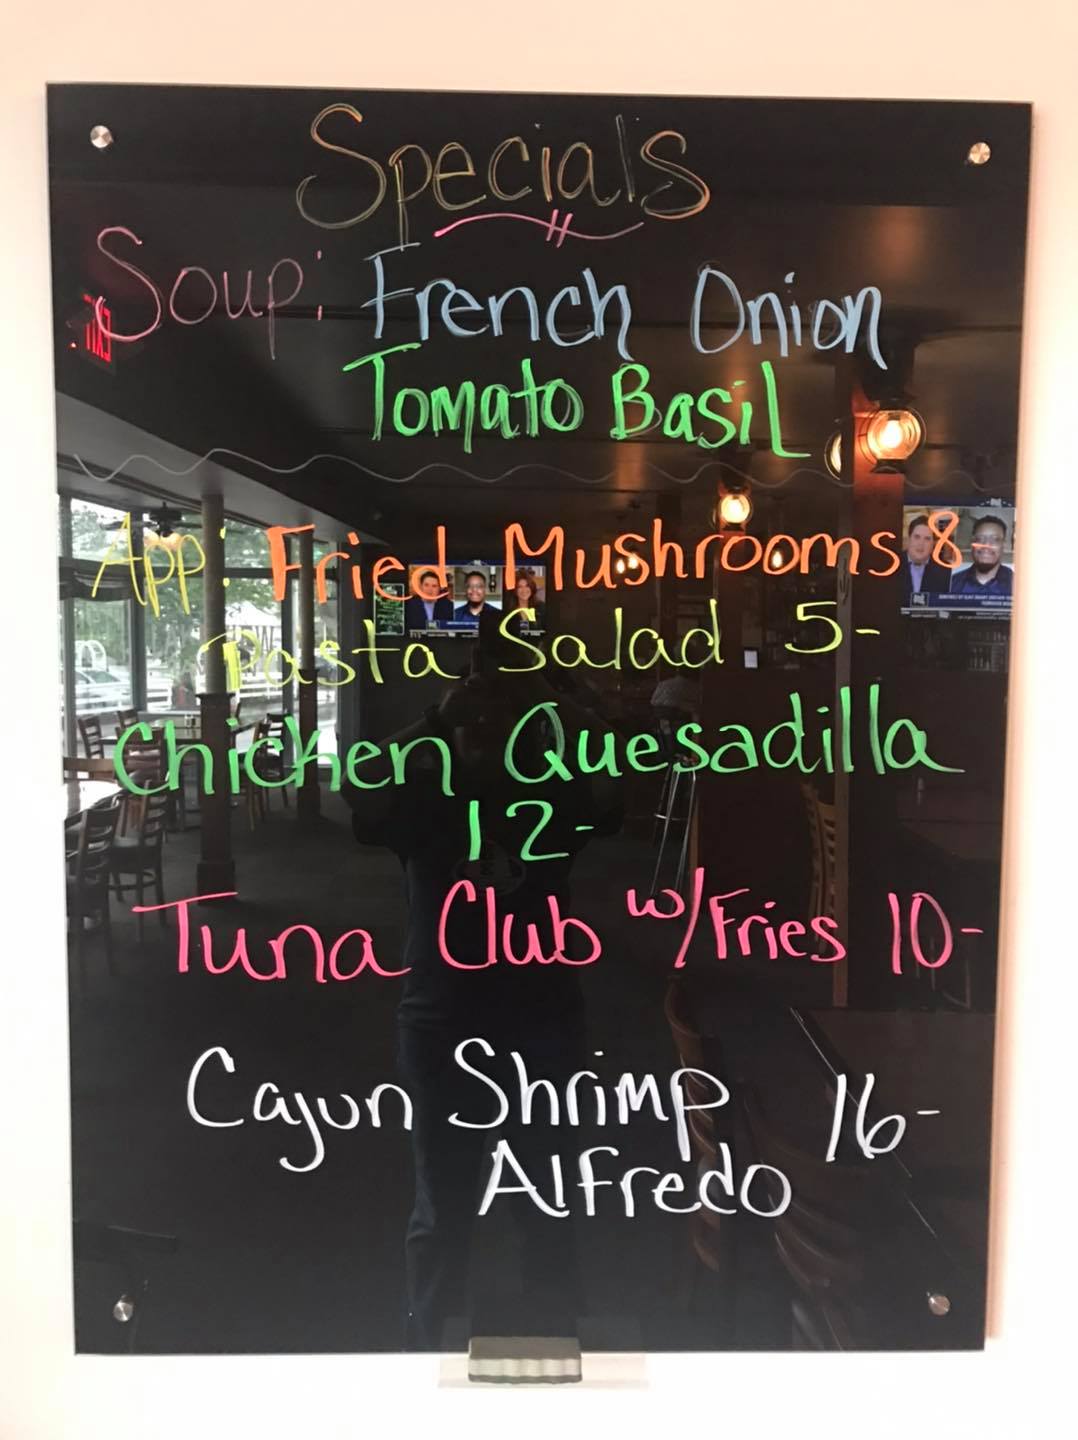 Specials
Soup: French Onion
Tomato Basil
App: Fried Mushrooms 8-
Pasta Salad 5-
Chicken Quesadilla
12-
Tuna Club w/Fries 10-
Cajun Shrimp 16-
Alfredo
EXIT